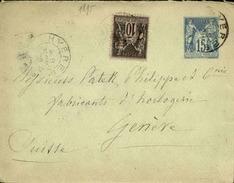 1895
HYÈRES
10
15
Messieurs Patek, Philippe et Cie
fabricants d'horlogerie
Genève
Suisse